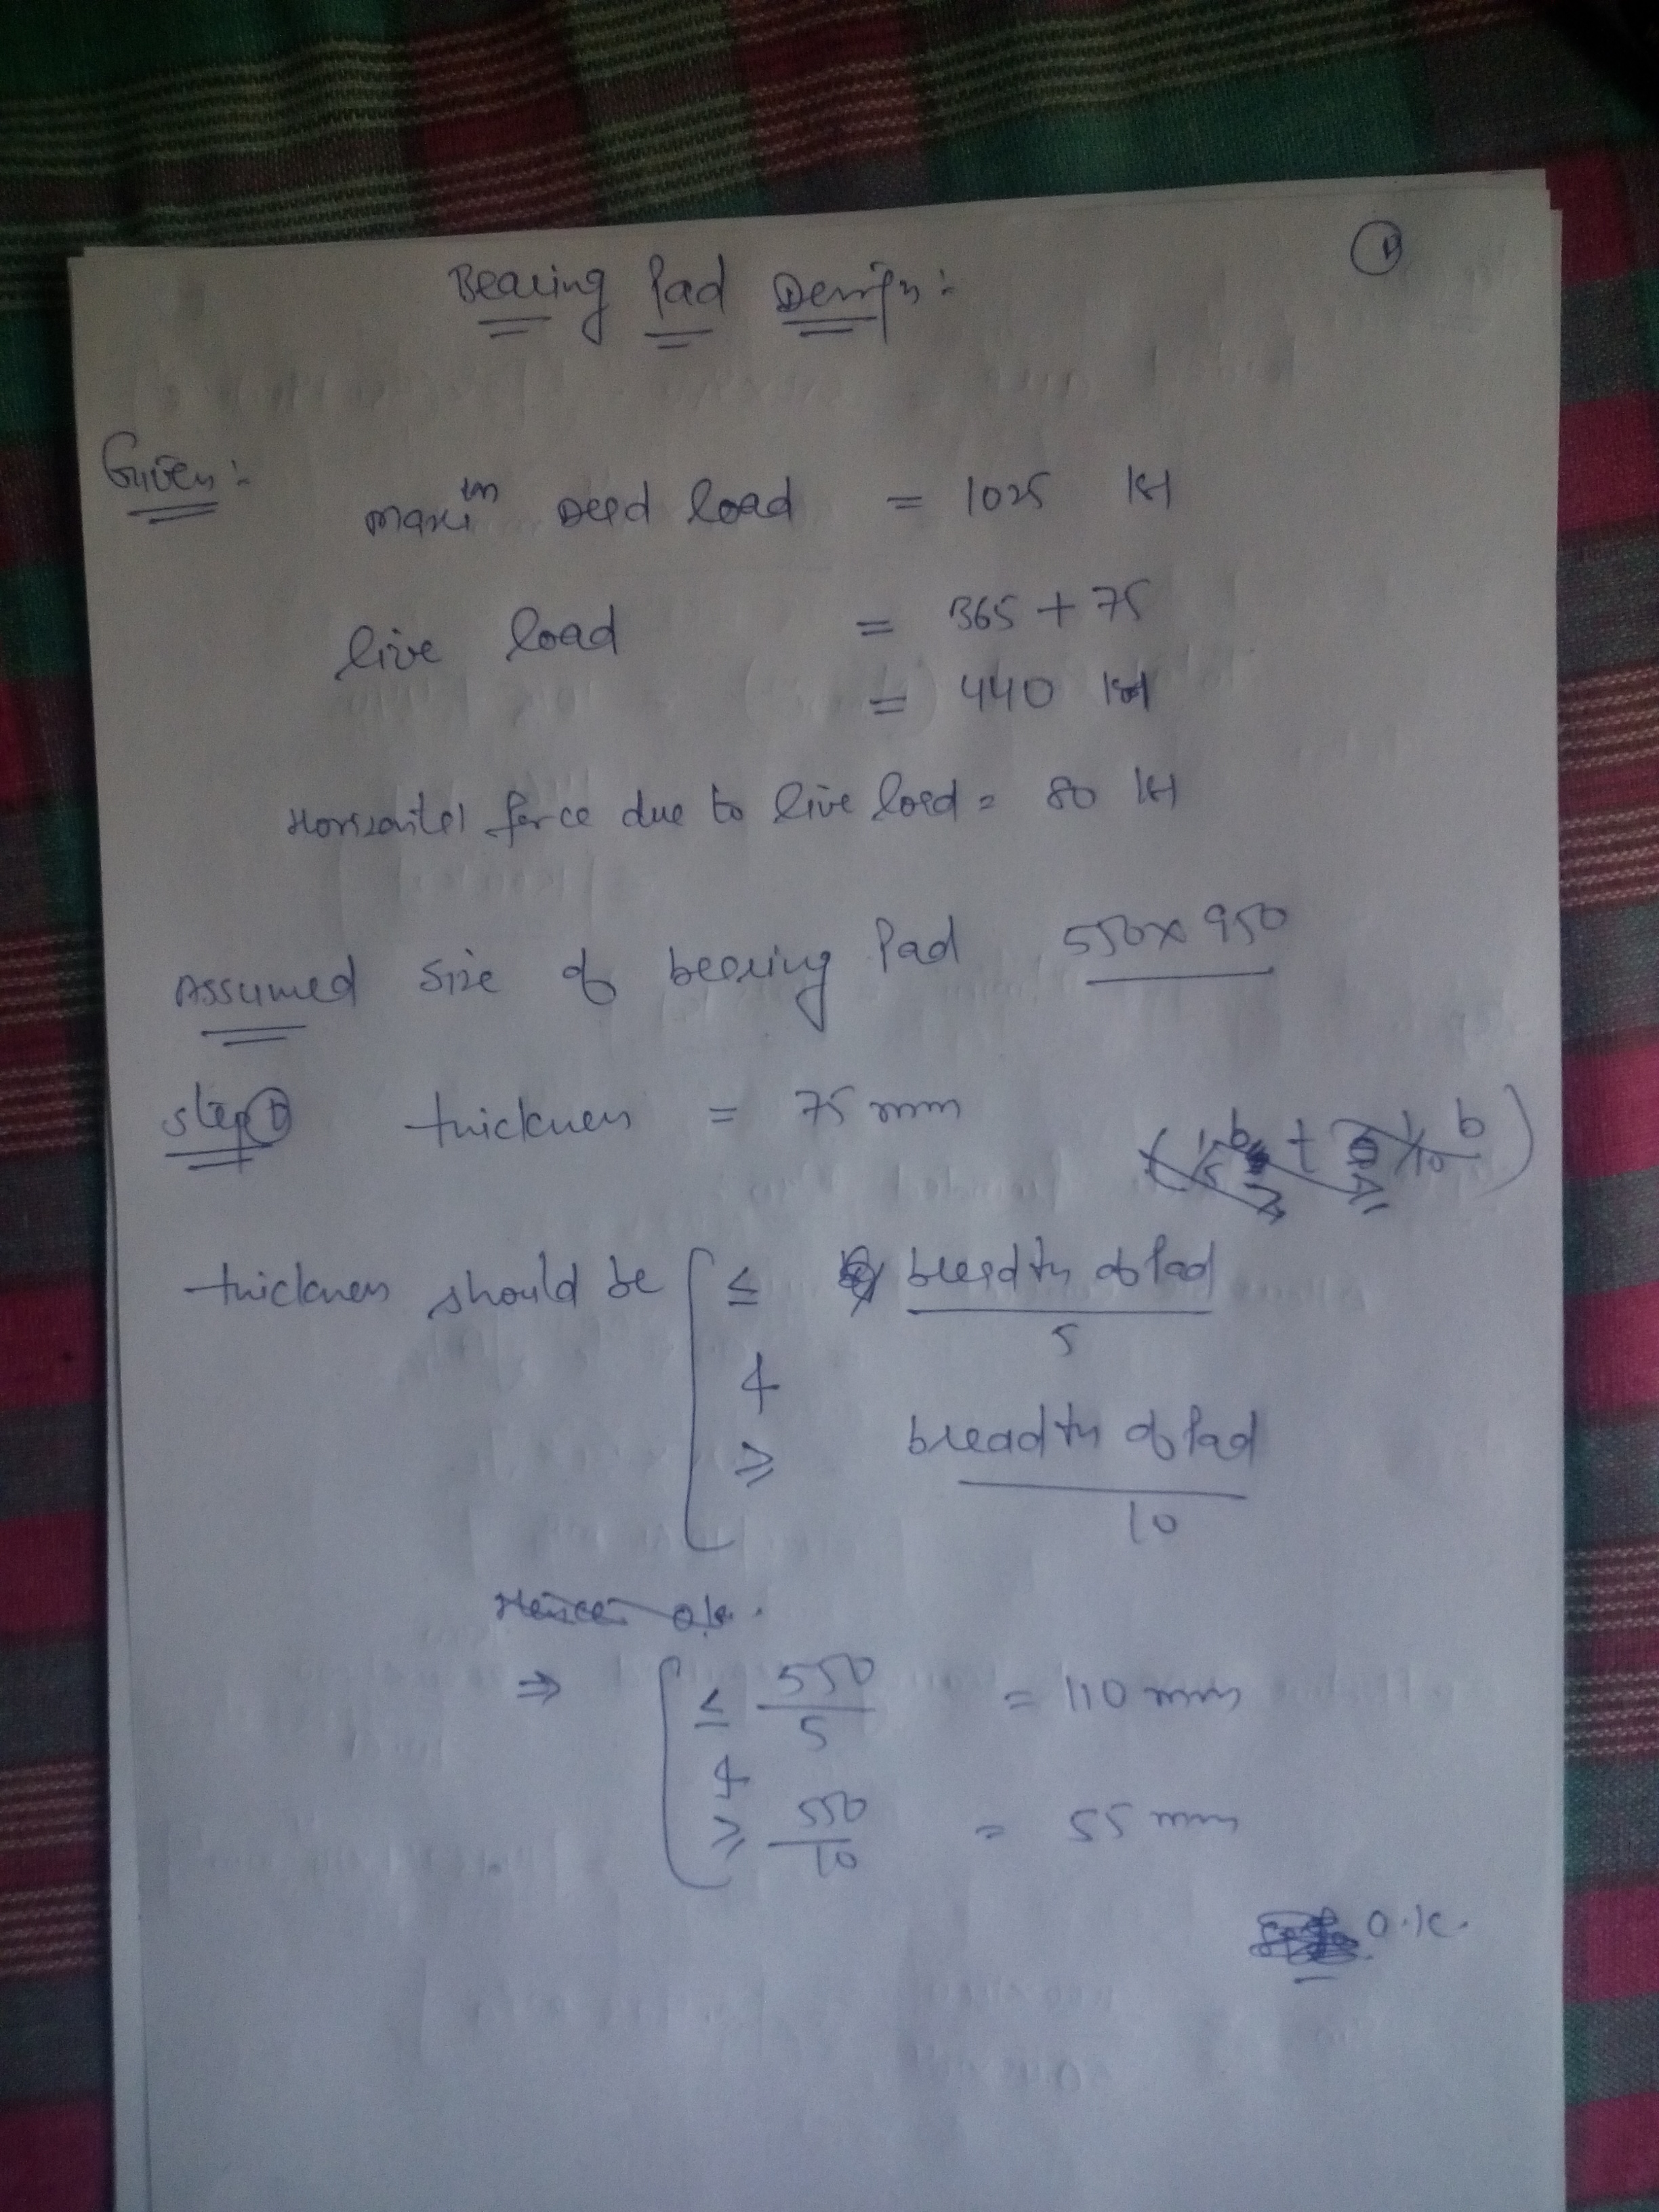 ①
Bearing Pad Design:
Given:
maxi^m Dead load = 1025 kN
live load = 365 + 75
= 440 kN
Horizontal force due to live load = 80 kN
Assumed size of bearing Pad 550 x 950
step ① thickness = 75 mm
thickness should be ≤ breadth of Pad / 5
&
≥ breadth of Pad / 10
Hence ok.
⇒ ≤ 550/5 = 110 mm
&
≥ 550/10 = 55 mm
O.K.